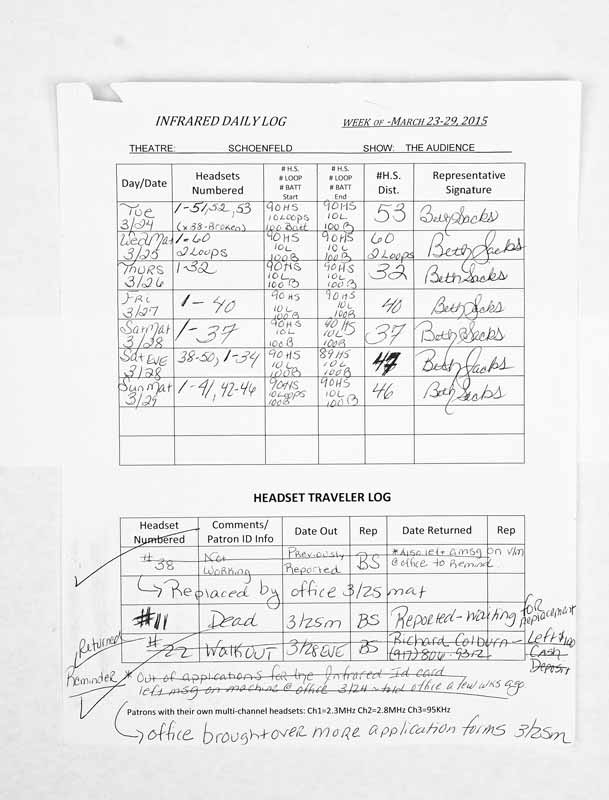 INFRARED DAILY LOG WEEK OF -MARCH 23-29, 2015
THEATRE: SCHOENFELD SHOW: THE AUDIENCE
Day/Date Headsets Numbered # H.S. # LOOP # BATT Start # H.S. # LOOP # BATT End #H.S. Dist. Representative Signature
Tue 3/24 1-51, 52, 53 (x38-Broken) 90HS 10Loops 100Batt 90HS 10L 100B 53 Beth Sacks
Wed Mat 3/25 1-60 2 Loops 90HS 10L 100B 90HS 10L 100B 60 2 Loops Beth Sacks
Thurs 3/26 1-32 90HS 10L 100B 90HS 10L 100B 32 Beth Sacks
Fri 3/27 1-40 90HS 10L 100B 90HS 10L 100B 40 Beth Sacks
Sat Mat 3/28 1-37 90HS 10L 100B 90HS 10L 100B 37 Beth Sacks
Sat Eve 3/28 38-50, 1-34 90HS 10L 100B 89HS 10L 100B 47 Beth Sacks
Sun Mat 3/29 1-41, 42-46 90HS 10Loops 100B 90HS 10L 100B 46 Beth Sacks
HEADSET TRAVELER LOG
Headset Numbered Comments/ Patron ID Info Date Out Rep Date Returned Rep
# 38 Not Working Previously Reported BS *Also left a msg on v/m @ office to Remind.
Replaced by office 3/25 mat
#11 Dead 3/25m BS Reported-Waiting for Replacement
Returned # 22 Walkout 3/28 Eve BS Richard Colburn - Left $100 Cash Deposit
(917) 806-9312
Reminder * Out of applications for the Infrared Id card
left msg on machine @ office 3/24 + told office a few wks ago
Patrons with their own multi-channel headsets: Ch1=2.3MHz Ch2=2.8MHz Ch3=95KHz
office brought over more application forms 3/25m